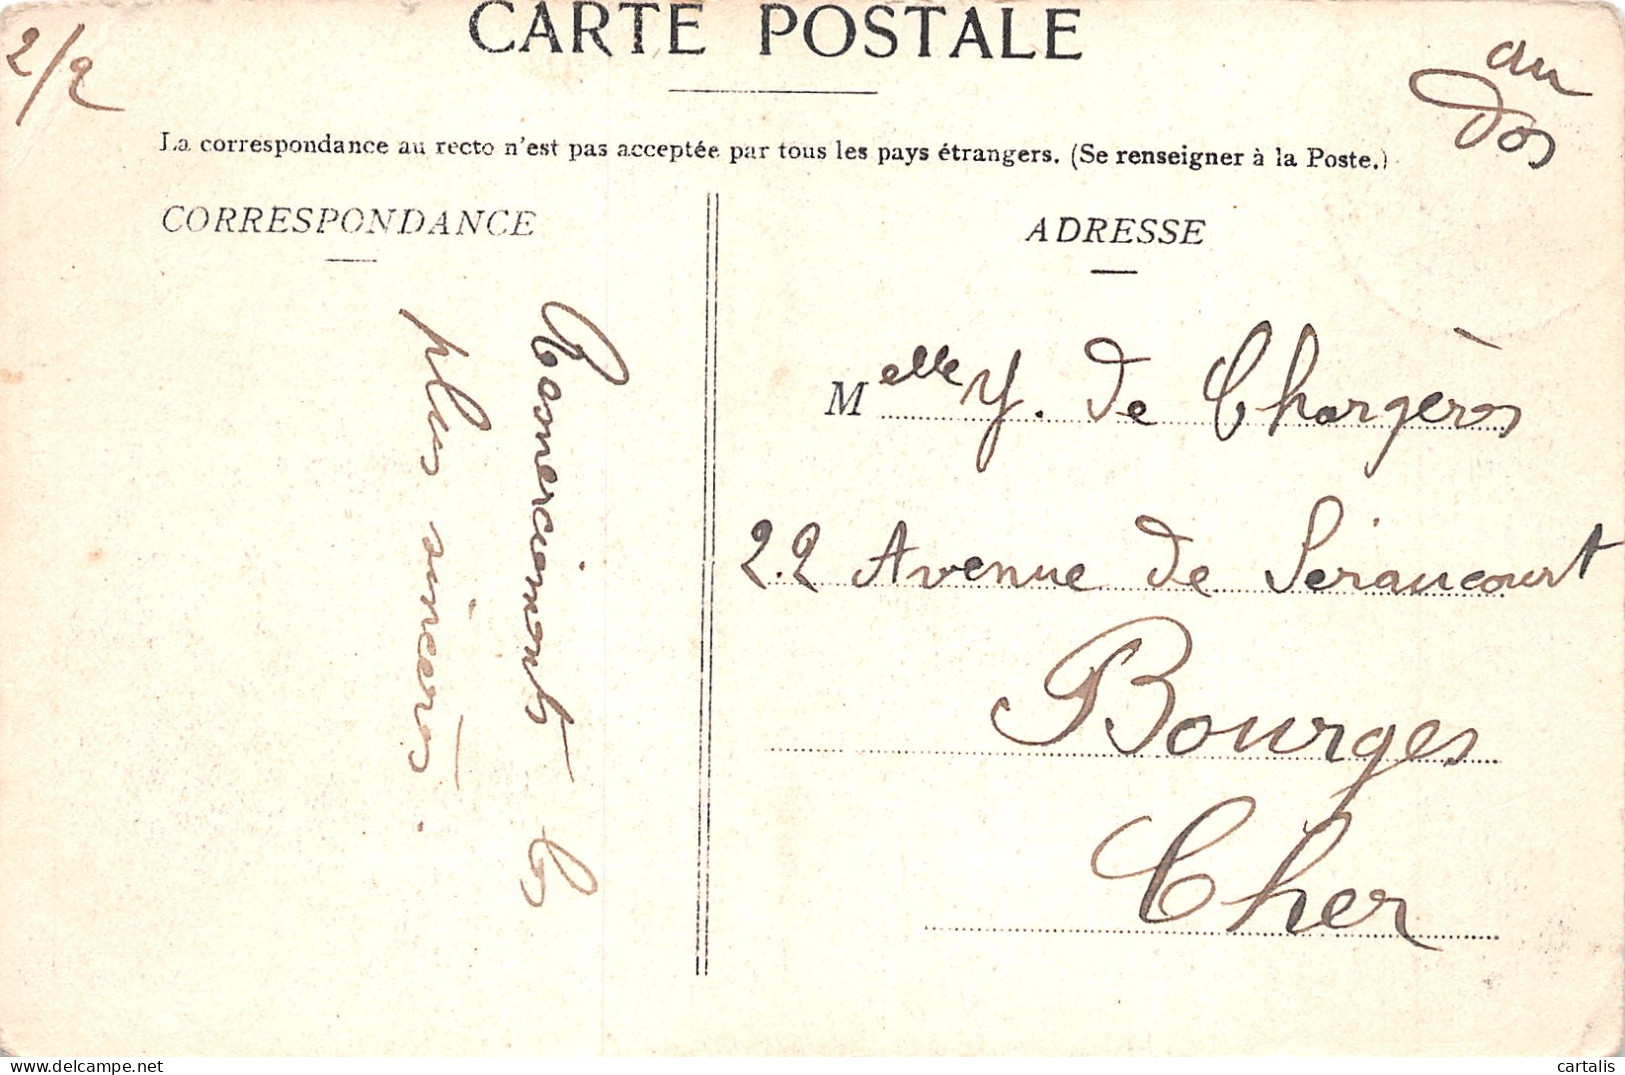 CARTE POSTALE
2/2
au
dos
La correspondance au recto n'est pas acceptée par tous les pays étrangers. (Se renseigner à la Poste.)
CORRESPONDANCE
Remerciements les
plus sincères.
ADRESSE
Melle Y. de Chargères
22 Avenue de Seraucourt
Bourges
Cher
cartalis